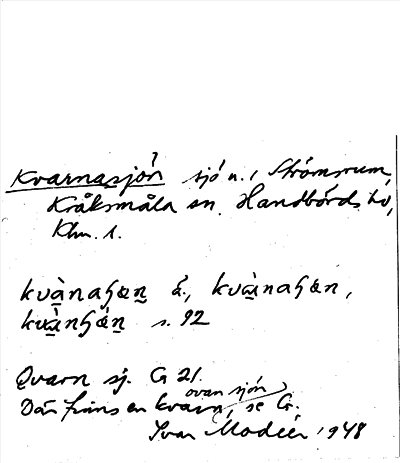 Kvarnasjön sjö n., Strömsrum,
Kråksmåla sn. Handbörds hd,
Klm. l.
kvànaɧøn å., kvànaɧøn,
kvànɧǿn s. 92
Qvarn sj. G 21.
ovan sjön
Där finns en kvarn, se G.
Ivar Modéer 1948